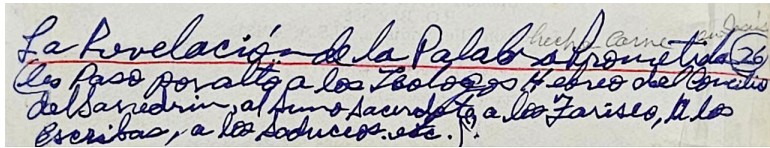 La Revelación de la Palabra Prometida 26
hecha carne en Jesús
(les Paso por alto a los Teologos Hebreo del Concilio
del Sanedrin, al sumo sacerdote a los Fariseo, a los
escribas, a los saduceos. etc.).